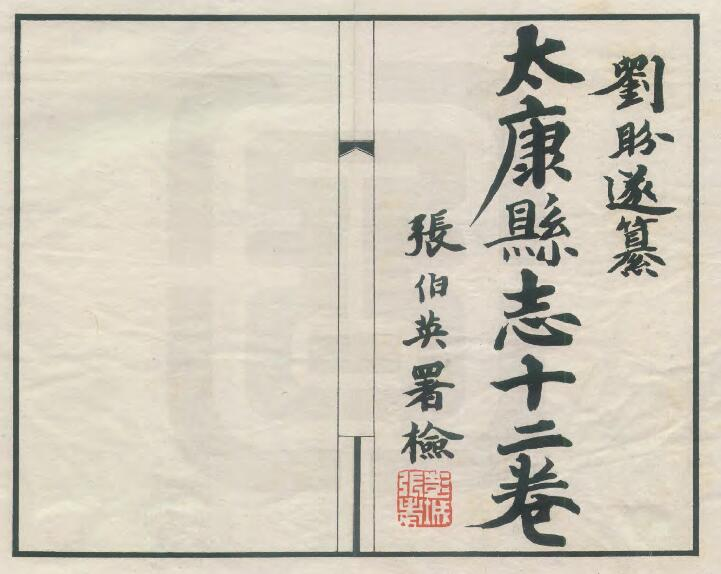 劉盼遂纂
太康縣志十二卷
張伯英署檢
彭城張氏